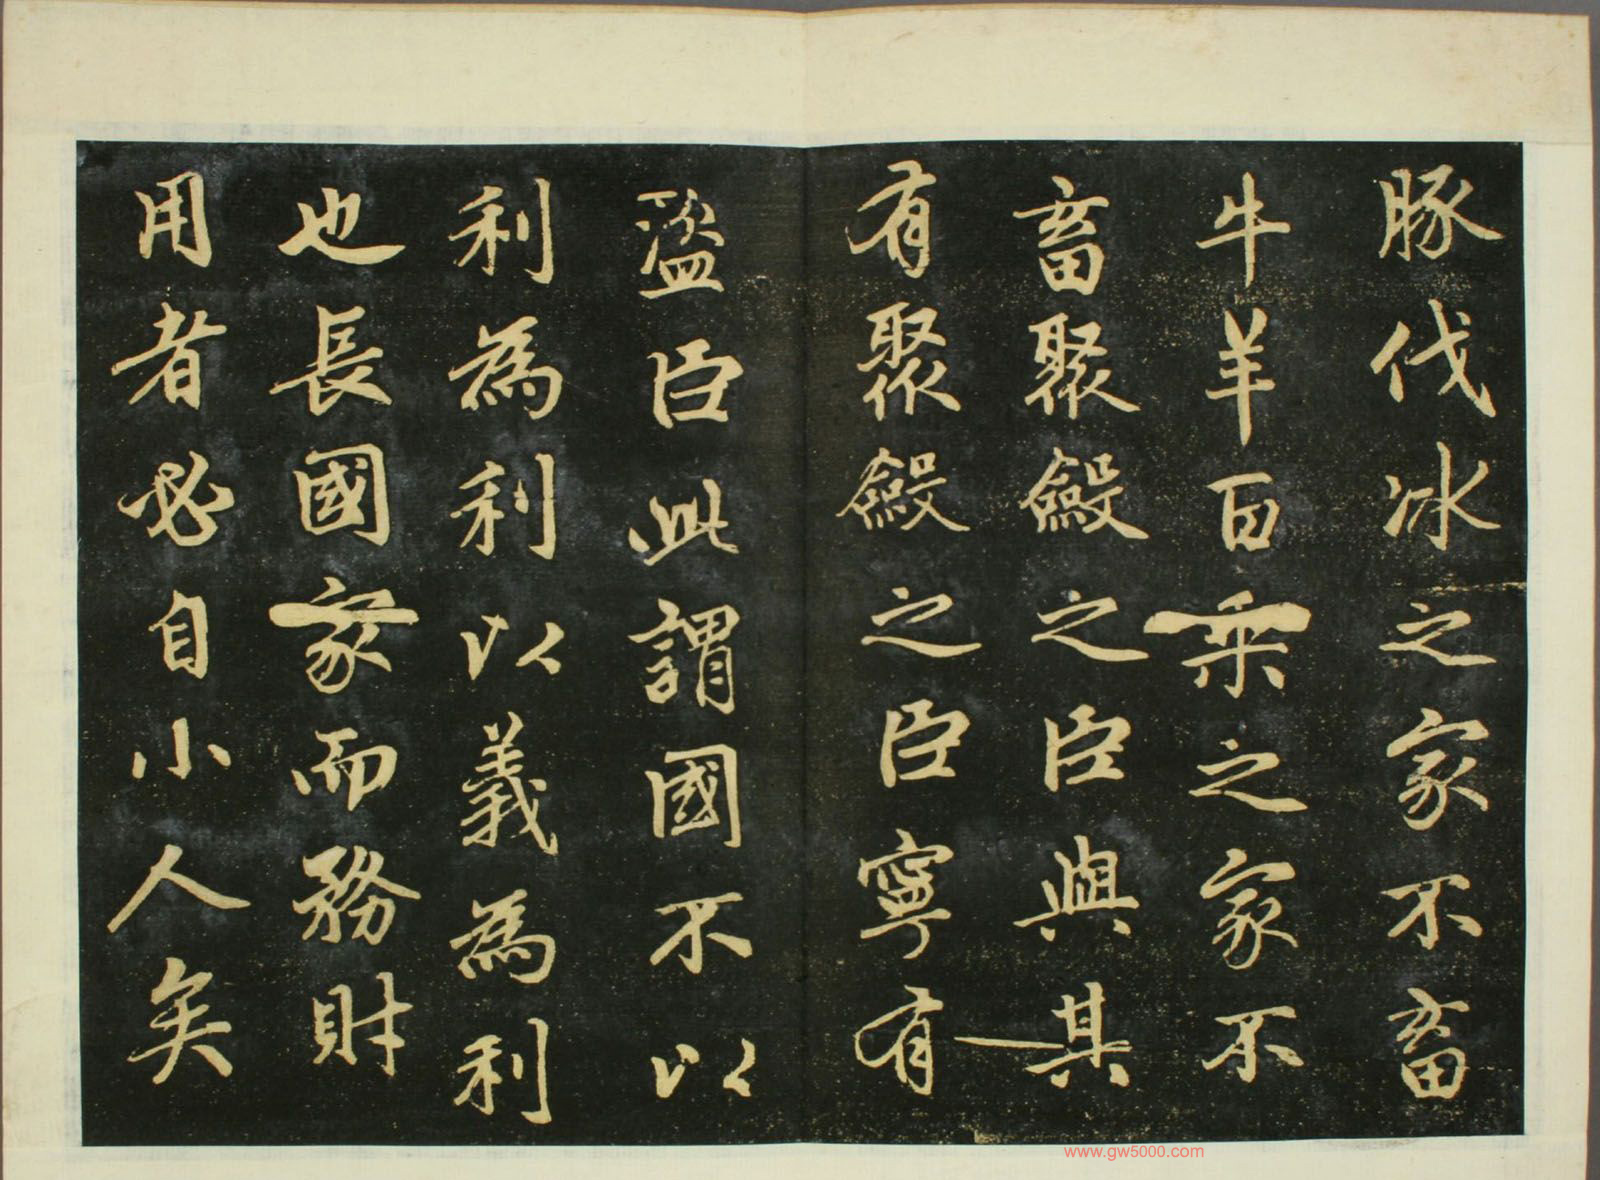 豚伐冰之家不畜
牛羊百乗之家不
畜聚斂之臣與其
有聚斂之臣寧有
盜臣此謂國不以
利為利以義為利
也長國家而務財
用者必自小人矣
www.gw5000.com